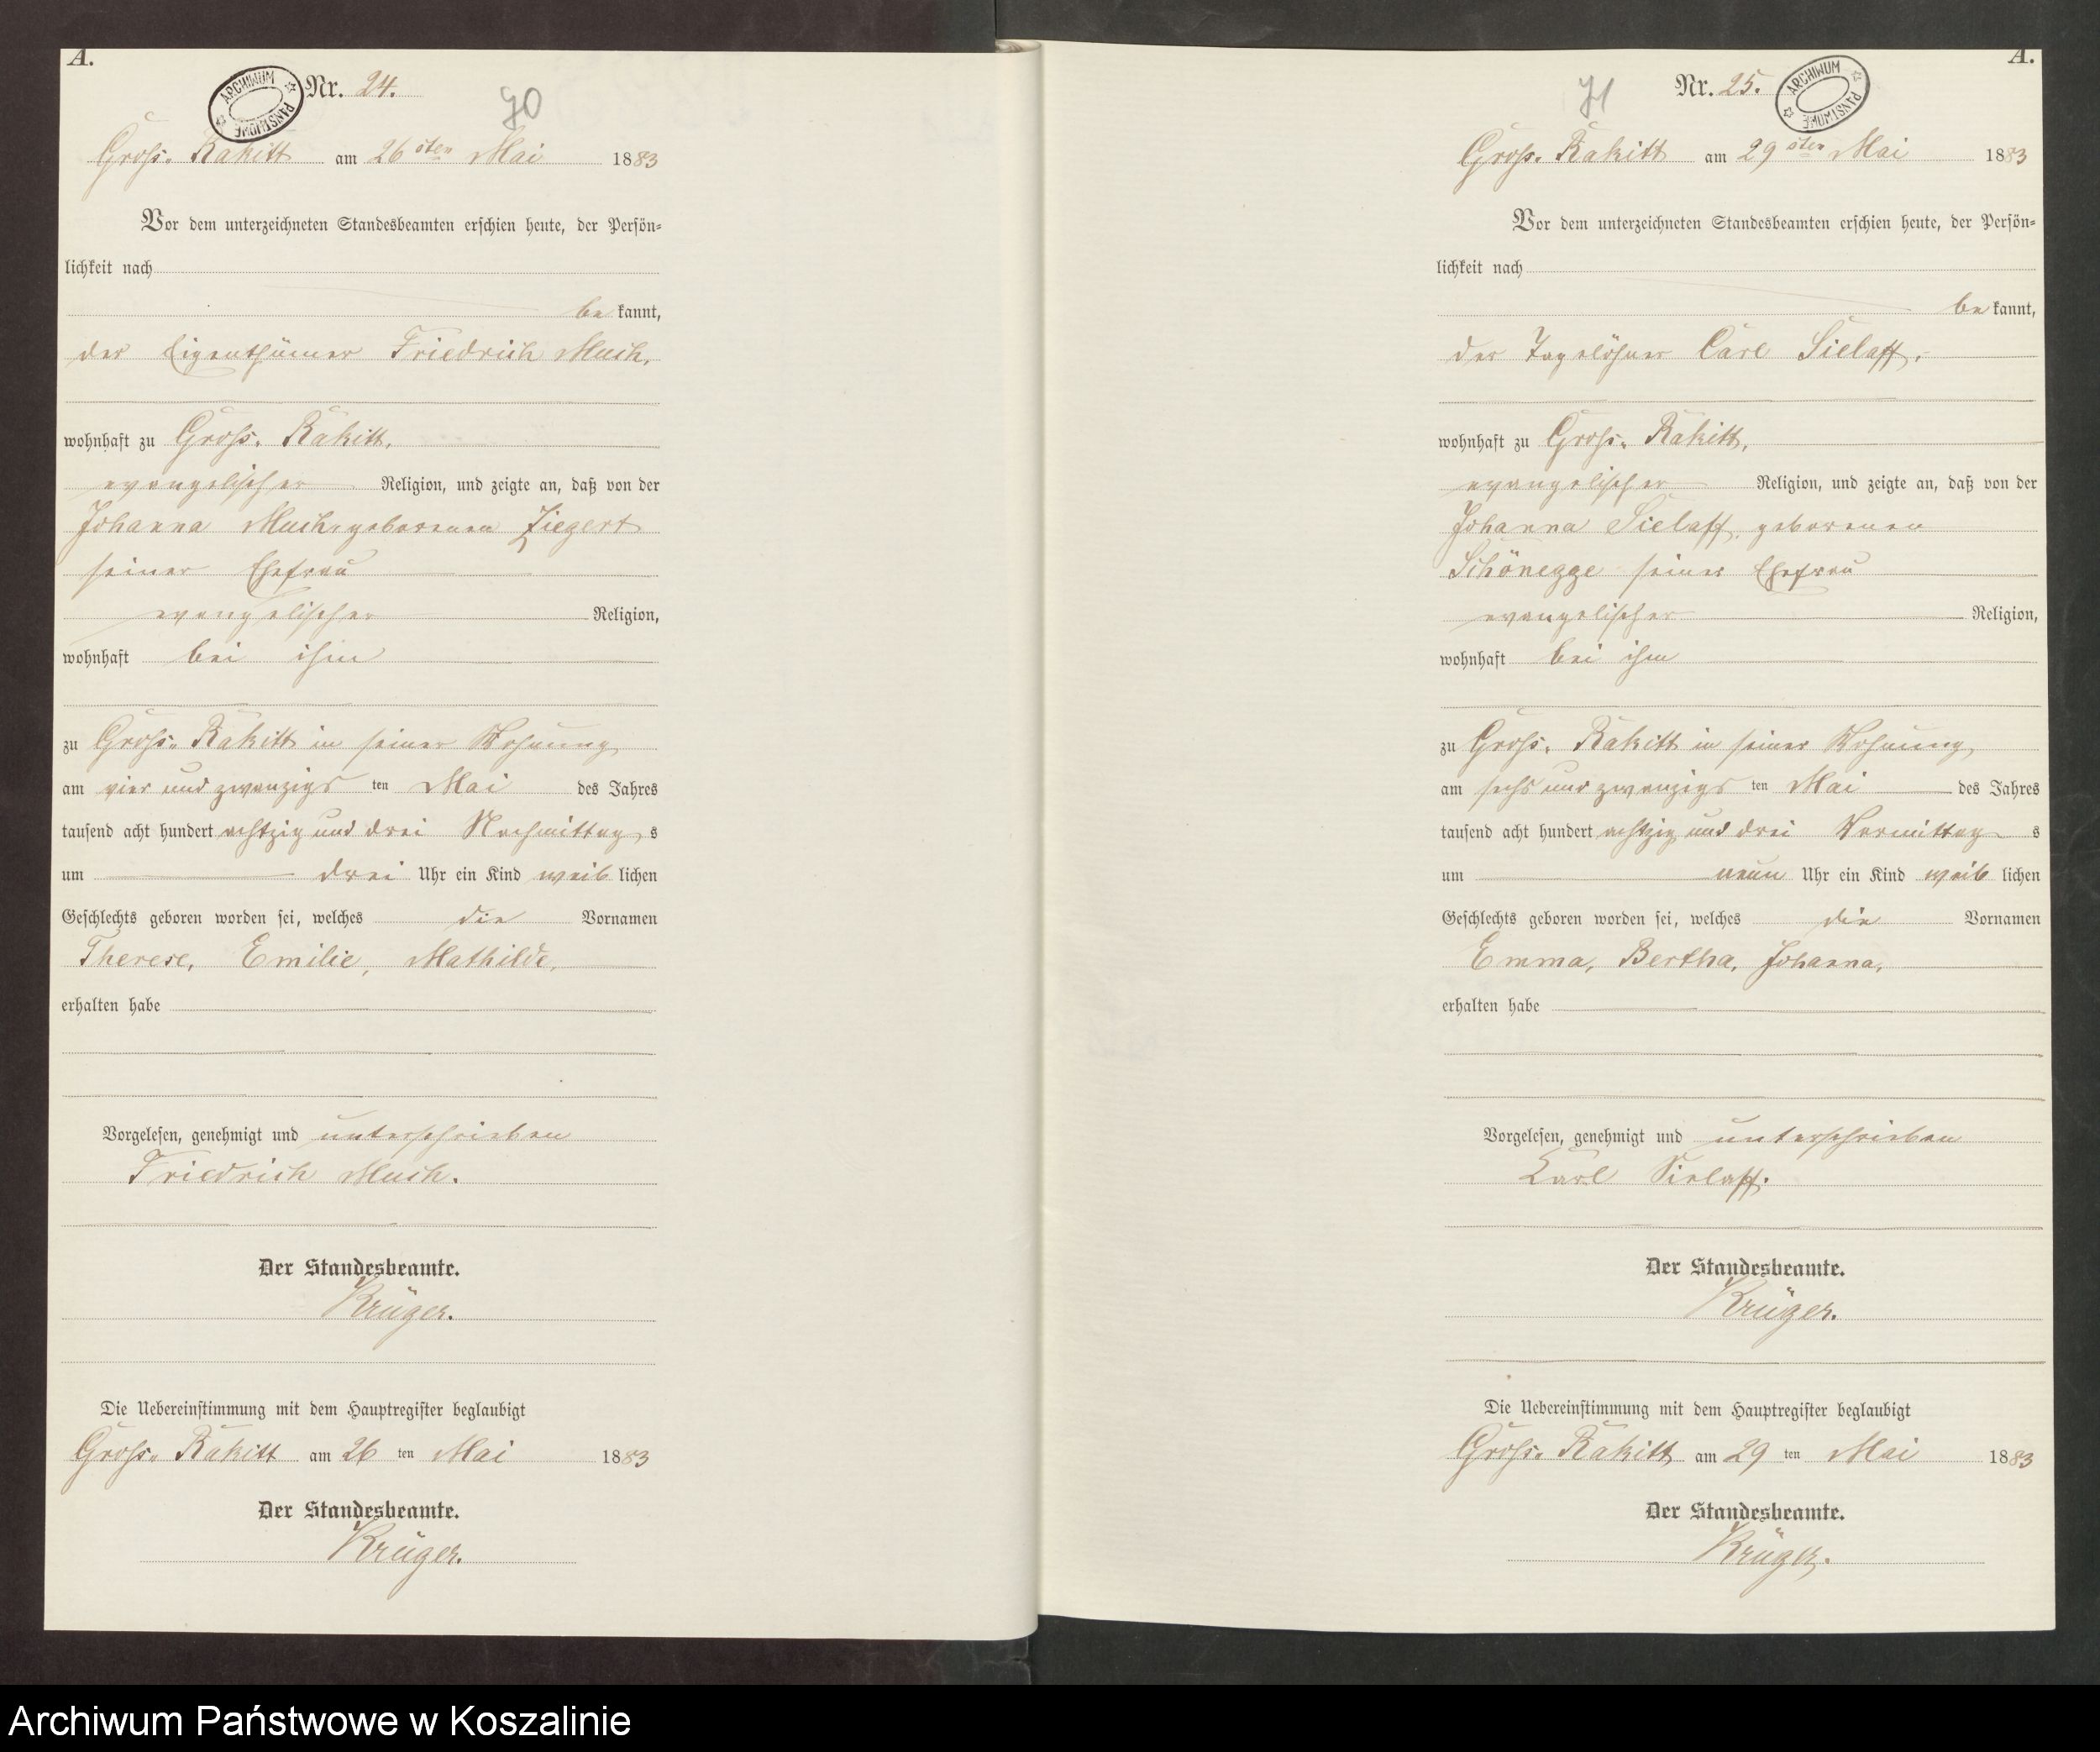 A.
ARCHIWUM PAŃSTWOWE
Nr. 24.
70
Gross. Rakitt am 26 sten Mai 1883
Vor dem unterzeichneten Standesbeamten erschien heute, der Persön-
lichkeit nach
be kannt,
der Eigenthümer Friedrich Much,
wohnhaft zu Gross. Rakitt,
evangelischer Religion, und zeigte an, daß von der
Johanna Much, geborenen Ziegert
seiner Ehefrau
evangelischer Religion,
wohnhaft bei ihm
zu Gross. Rakitt in seiner Wohnung
am vier und zwanzigs ten Mai des Jahres
tausend acht hundert achtzig und drei Nachmittag s
um drei Uhr ein Kind weib lichen
Geschlechts geboren worden sei, welches die Vornamen
Therese, Emilie, Mathilde,
erhalten habe
Vorgelesen, genehmigt und unterschrieben
Friedrich Much.
Der Standesbeamte.
Krüger.
Die Uebereinstimmung mit dem Hauptregister beglaubigt
Gross. Rakitt am 26 ten Mai 1883
Der Standesbeamte.
Krüger.
A.
71
Nr. 25.
ARCHIWUM PAŃSTWOWE
Gross. Rakitt am 29 sten Mai 1883
Vor dem unterzeichneten Standesbeamten erschien heute, der Persön-
lichkeit nach
be kannt,
der Tagelöhner Carl Sielaff.
wohnhaft zu Gross. Rakitt,
evangelischer Religion, und zeigte an, daß von der
Johanna Sielaff, geborenen
Schönegge seiner Ehefrau
evangelischer Religion,
wohnhaft bei ihm
zu Gross. Rakitt in seiner Wohnung
am sechs und zwanzigs ten Mai des Jahres
tausend acht hundert achtzig und drei Vormittag s
um neun Uhr ein Kind weib lichen
Geschlechts geboren worden sei, welches die Vornamen
Emma, Bertha, Johanna,
erhalten habe
Vorgelesen, genehmigt und unterschrieben
Karl Sielaff.
Der Standesbeamte.
Krüger.
Die Uebereinstimmung mit dem Hauptregister beglaubigt
Gross. Rakitt am 29 ten Mai 1883
Der Standesbeamte.
Krüger.
Archiwum Państwowe w Koszalinie